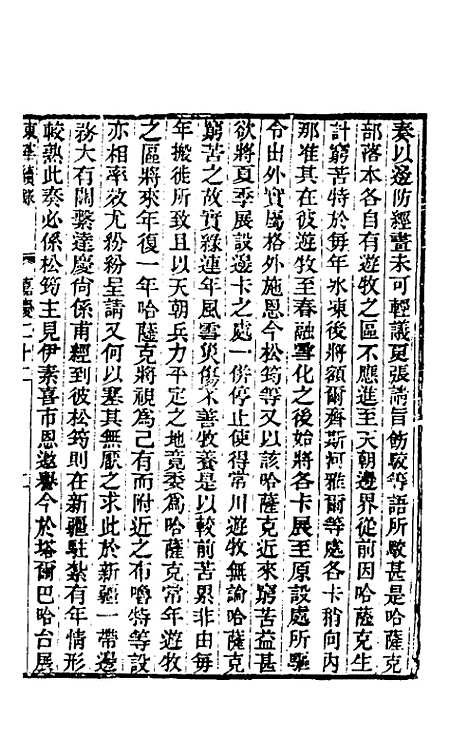 奏以邊防經畫未可輕議更張請旨飭駁等語所駁甚是哈薩克
部落本各自有遊牧之區不應進至天朝邊界從前因哈薩克生
計窮苦特於每年氷凍後將額爾齊斯柯雅爾等處各卡稍向內
那准其在彼遊牧至春融雪化之後始將各卡展至原設處所驅
令出外實屬格外施恩今松筠等又以該哈薩克近來窮苦益甚
欲將夏季展設邊卡之處一併停止使得常川遊牧無論哈薩克
窮苦之故實緣連年風雪災傷不善牧養是以較前苦累非由每
年搬徙所致且以天朝兵力平定之地竟委爲哈薩克常年遊牧
之區將來年復一年哈薩克將視爲己有而附近之布嚕特等設
亦相率效尤紛紛呈請又何以塞其無厭之求此於新疆一帶邊
務大有關繫達慶尙係甫經到彼松筠則在新疆駐紮有年情形
較熟此奏必係松筠主見伊素喜市恩邀譽今於塔爾巴哈台展
東華續錄 嘉慶二十二